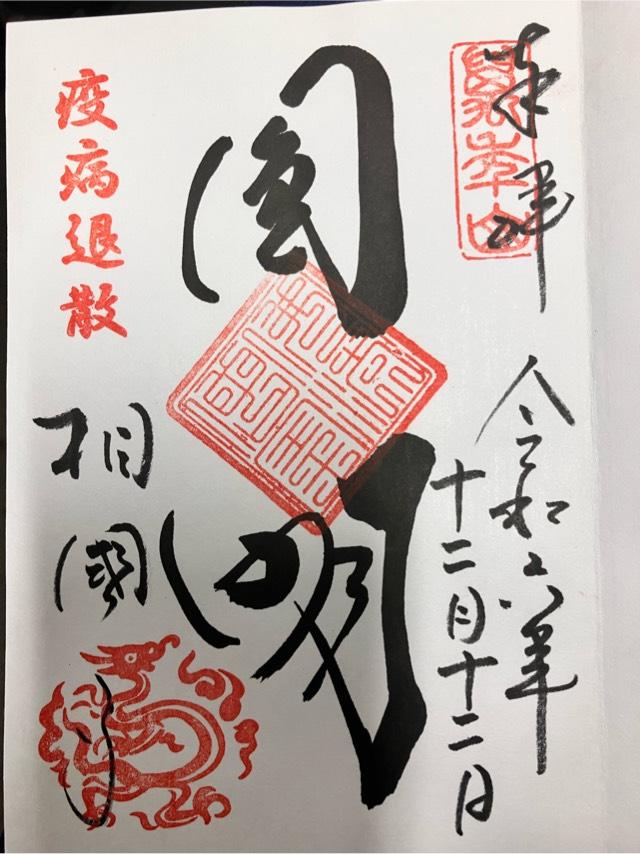 奉拝
萬年山
令和六年
十二月十二日
圓明
疫病退散
相國寺